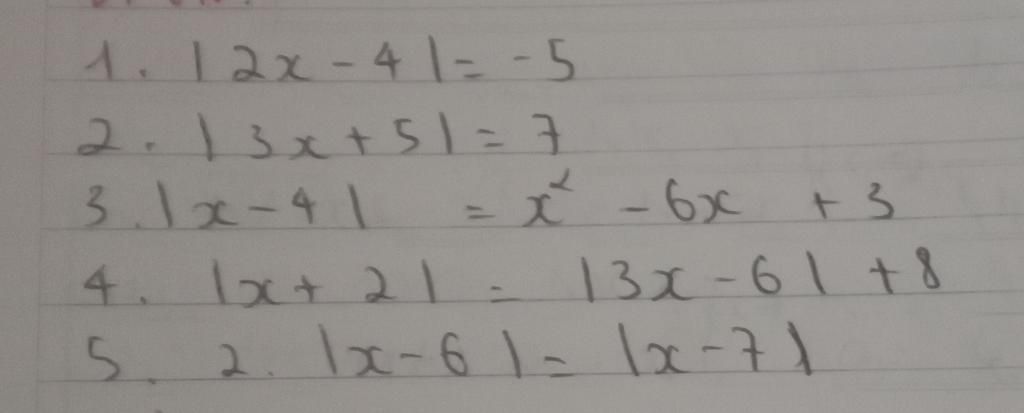 1. |2x - 4| = -5
2. |3x + 5| = 7
3. |x - 4| = x² - 6x + 3
4. |x + 2| = |3x - 6| + 8
5. 2. |x - 6| = |x - 7|